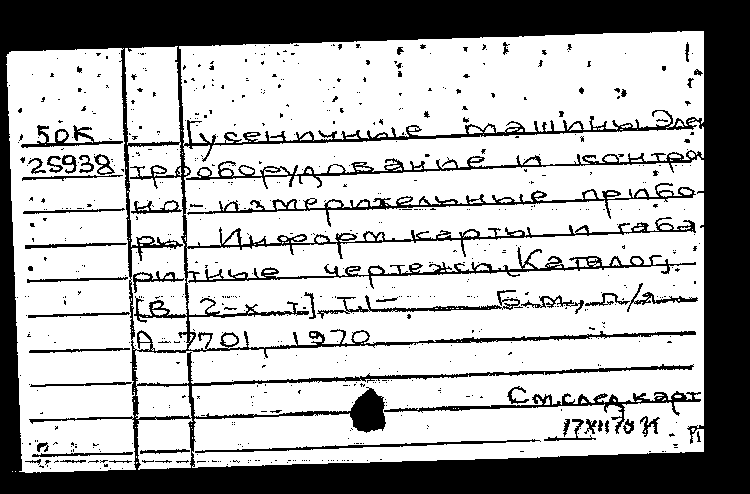 50К Гусеничные машины. Элек
25938 трооборудование и контро
но-измерительные прибо-
ры. Информ. карты и габа-
ритные чертежи. Каталог.
[В 2-х т.] Т.1- Б.м., п/я
А-7701, 1970
См. след. карт
17XII70